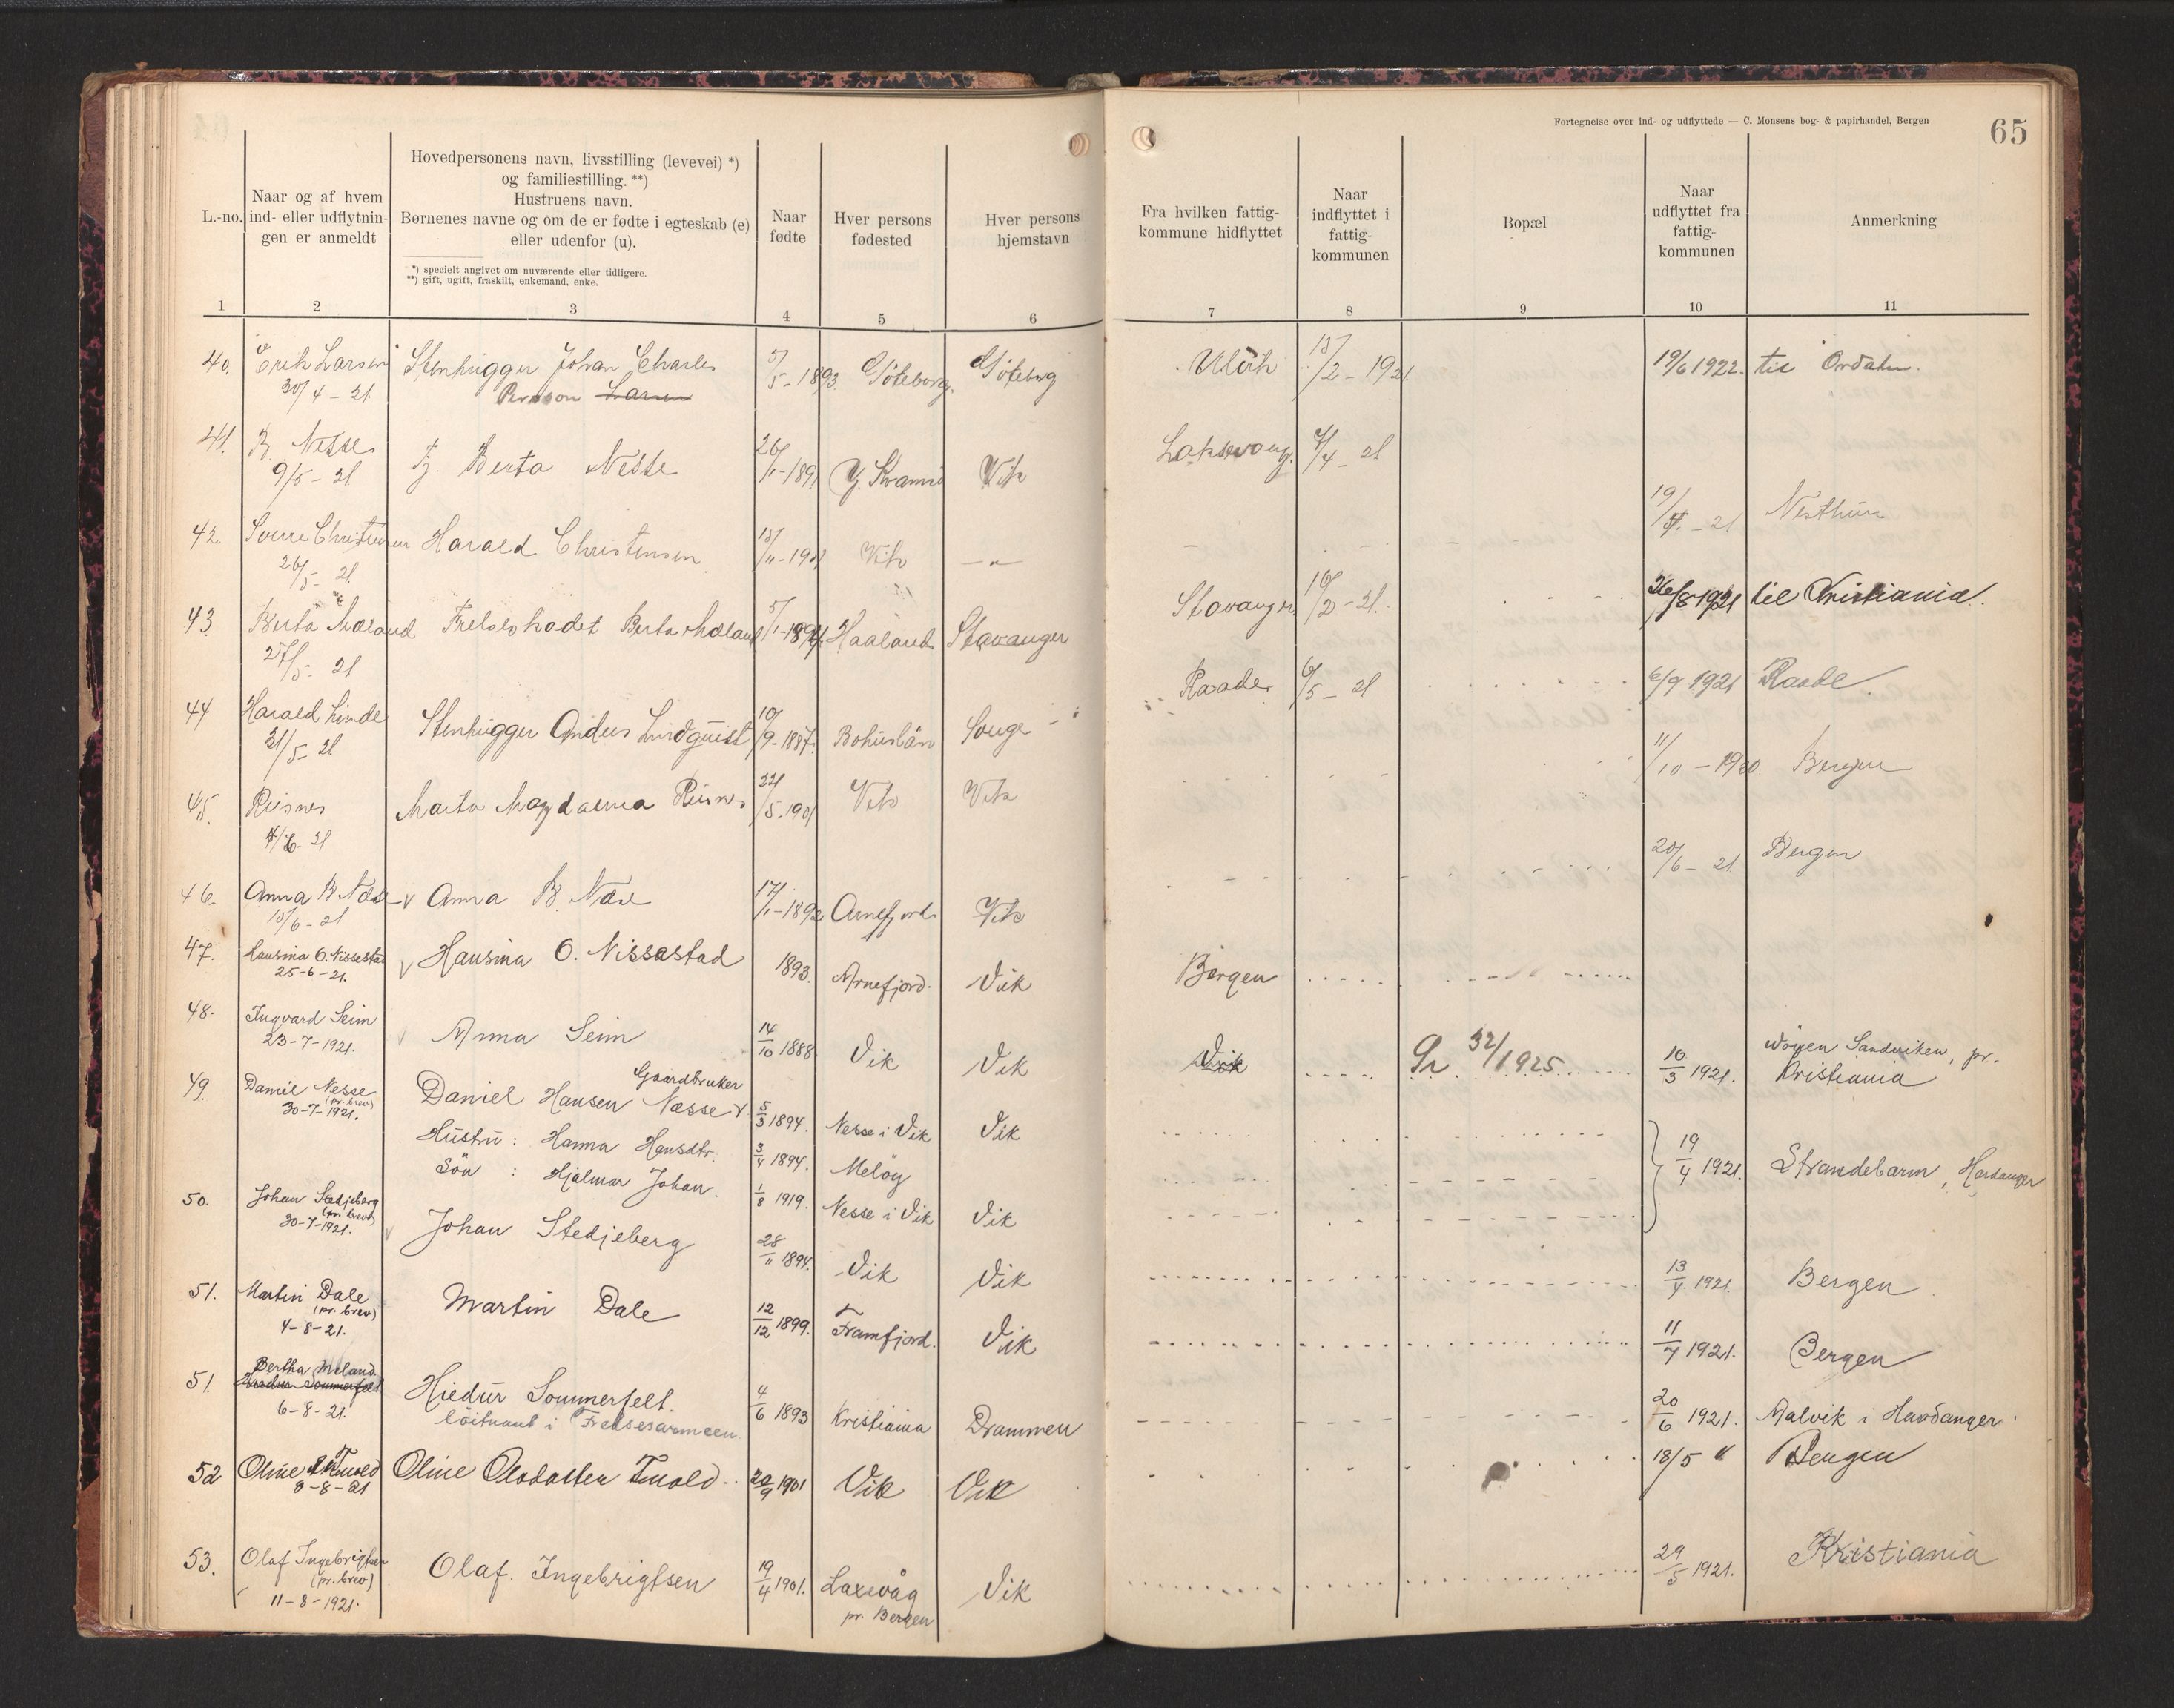 Fortegnelse over ind- og udflyttede — C. Monsens bog- & papirhandel, Bergen
65
L.-no.
Naar og af hvem
ind- eller udflytnin-
gen er anmeldt
Hovedpersonens navn, livsstilling (levevei) *)
og familiestilling. **)
Hustruens navn.
Børnenes navne og om de er fødte i egteskab (e)
eller udenfor (u).
*) specielt angivet om nuværende eller tidligere.
**) gift, ugift, fraskilt, enkemand, enke.
Naar
fødte
Hver persons
fødested
Hver persons
hjemstavn
Fra hvilken fattig-
kommune hidflyttet
Naar
indflyttet i
fattig-
kommunen
Bopæl
Naar
udflyttet fra
fattig-
kommunen
Anmerkning
1 2 3 4 5 6 7 8 9 10 11
40. Erik Larsen Stenhugger Johan Charles 5/5-1893 Göteborg Göteborg 15/2-1921 19/6 1922. til
30/4-21 Larsen
41. B. Nesse Berta Nesse 26/1-1891 Vik Laksevaag 7/4-21
9/5-21
19/4-21 Nesttun
42. Sverre Christensen Harald Christensen 15/11-1901 Vik —"—
26/5-21
43. Berta Mæland Frelseskadet Berta Mæland 5/1-1894 Haaland Stavanger Stavanger 16/2-21. 26/8 1921 til Kristiania.
27/5-21
44 Harald Linde Stenhugger Anders Lindquist 10/9-1887. Bohuslän Sverge Raade 6/5-21 6/9 1921 Raade.
21/5-21
45. Risnes Marta Magdalena Risnes 22/5-1901 Vik Vik 11/10-1920 Bergen
4/6-21
46. Anna B Næse v Anna B. Næse 17/1-1892 Arnefjord Vik 20/6-21 Bergen
10/6-21
47. Hansina O. Nissestad v Hansina O. Nissestad 1893. Arnefjord. Vik Bergen
25-6-21.
48. Ingvard Seim Anna Seim 14/10 1888 Vik Vik Vik 32/1925 10/3 1921. Sandviken, pr.
23-7-1921. Kristiania
49. Daniel Nesse Gaardbruker
(pr. brev) Daniel Hansen Næsse v 5/3 1894. Nesse i Vik Vik
30-7-1921. Hustru: Hanna Hansdtr. 3/4 1894. Meløy 19/4 1921. Strandebarm, Hardanger
Søn : Hjalmar Johan. 1/8 1919. Nesse i Vik Vik
50. Johan Stedjeberg Johan Stedjeberg 28/11 1894. Vik Vik 13/4 1921. Bergen
(pr. brev)
30-7-1921.
51. Martin Dale Martin Dale 12/12 1899. Framfjord. Vik 11/7 1921. Bergen
(pr. brev)
4-8-21.
51. Bertha Meland. Hiedur Sommerfelt. 4/6 1893 Kristiania Drammen 20/6 1921. Malvik i Hardanger
6-8-21. löitnant i Frelsesarmeen
52 Oline Oline Olsdatter 20/9 1901 Vik Vik 18/5 " Bergen
8-8-21
53. Olaf Ingebrigtsen Olaf. Ingebrigtsen 19/4 1901. Laxevåg Vik 29/5 1921. Kristiania
(pr. brev) pr. Bergen
11-8-1921.